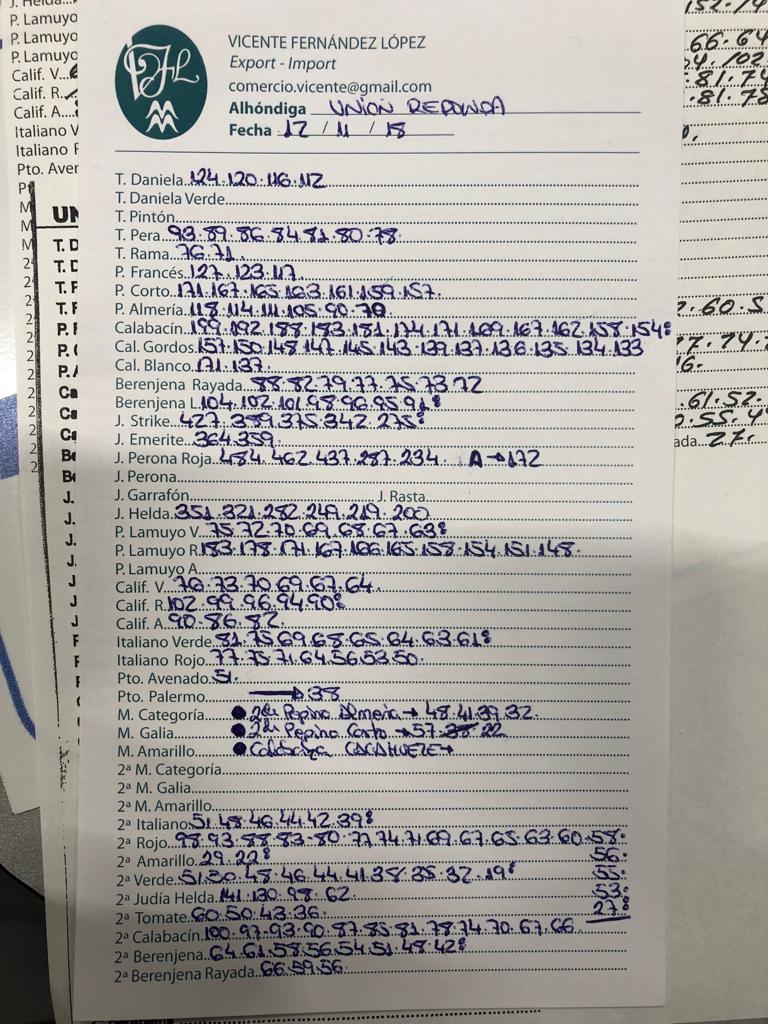 VICENTE FERNÁNDEZ LÓPEZ
Export - Import
comercio.vicente@gmail.com
Alhóndiga UNION REDONDA
Fecha 12 / 11 / 18
T. Daniela 124.120.116.112
T. Daniela Verde
T. Pintón
T. Pera 93.89.86.84.81.80.78
T. Rama 76.71
P. Francés 127.123.117
P. Corto 171.167.165.163.161.159.157
P. Almería 118.114.111.105.90.70
Calabacín 199.192.188.183.181.174.171.169.167.162.158.154
Cal. Gordos 157.150.148.147.145.143.139.137.136.135.134.133
Cal. Blanco 171.137
Berenjena Rayada 88.82.79.77.75.73.72
Berenjena L 104.102.101.98.96.95.91
J. Strike 427.389.375.342.275
J. Emerite 364.359
J. Perona Roja 484.462.437.287.234 A→172
J. Perona
J. Garrafón J. Rasta
J. Helda 351.321.282.249.219.200
P. Lamuyo V. 75.72.70.69.68.67.63
P. Lamuyo R. 183.178.171.167.166.165.158.154.151.148
P. Lamuyo A.
Calif. V. 76.73.70.69.67.64
Calif. R. 102.99.96.94.90
Calif. A. 90.86.82
Italiano Verde 81.75.69.68.65.64.63.61
Italiano Rojo 77.75.71.64.56.53.50
Pto. Avenado 51
Pto. Palermo → 38
M. Categoría ● 2ª de Pepino Almeria → 48.41.39.32
M. Galia ● 2ª de Pepino Corto → 57.35.22
M. Amarillo ● Calabaza CACAHUETE →
2ª M. Categoría
2ª M. Galia
2ª M. Amarillo
2ª Italiano 51.48.46.44.42.39
2ª Rojo 98.93.88.83.80.77.74.71.69.67.65.63.60.58
56
2ª Amarillo 29.22
55
2ª Verde 51.50.48.46.44.41.38.35.32.19
53
2ª Judía Helda 141.130.98.62
27
2ª Tomate 60.50.43.36
2ª Calabacín 100.97.93.90.87.85.81.78.74.70.67.66
2ª Berenjena 64.61.58.56.54.51.48.42
2ª Berenjena Rayada 66.59.56